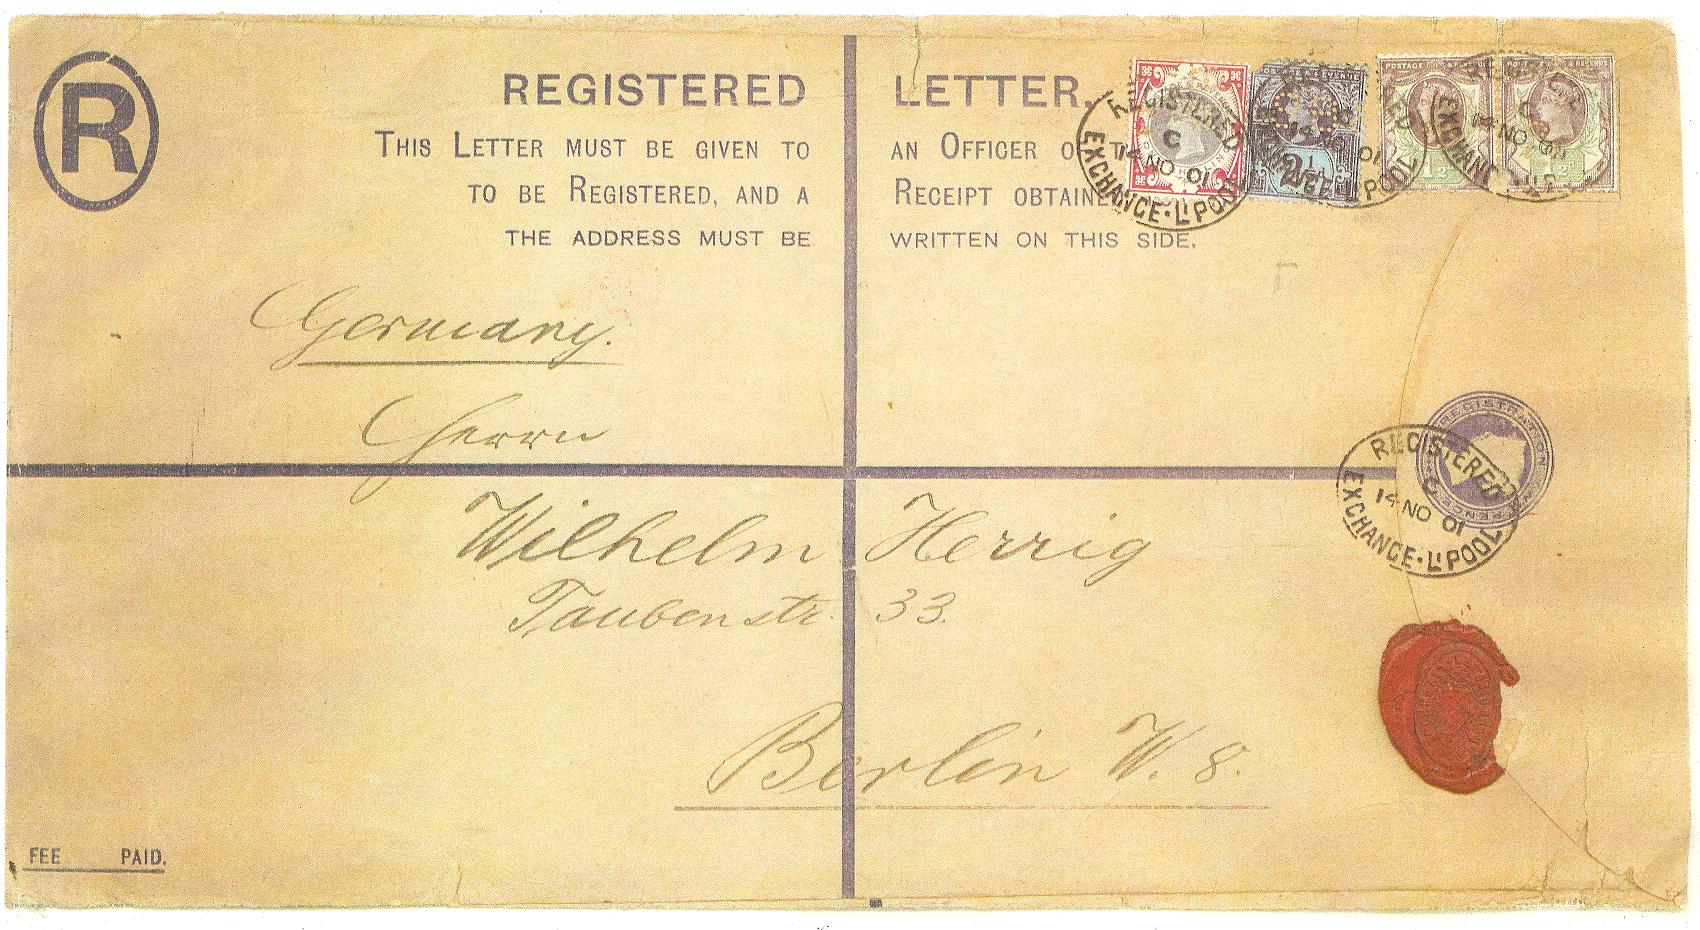 R
REGISTERED LETTER.
THIS LETTER MUST BE GIVEN TO AN OFFICER OF T
TO BE REGISTERED, AND A RECEIPT OBTAINE
THE ADDRESS MUST BE WRITTEN ON THIS SIDE.
REGISTERED
C
14 NO 01
EXCHANGE · L'POOL
2½
POSTAGE & REVENUE
1½
Germany.
Herrn
Wilhelm Herrig
Taubenstr. 33.
Berlin W. 8.
REGISTRATION
REGISTERED
C
14 NO 01
EXCHANGE · L'POOL
FEE PAID.